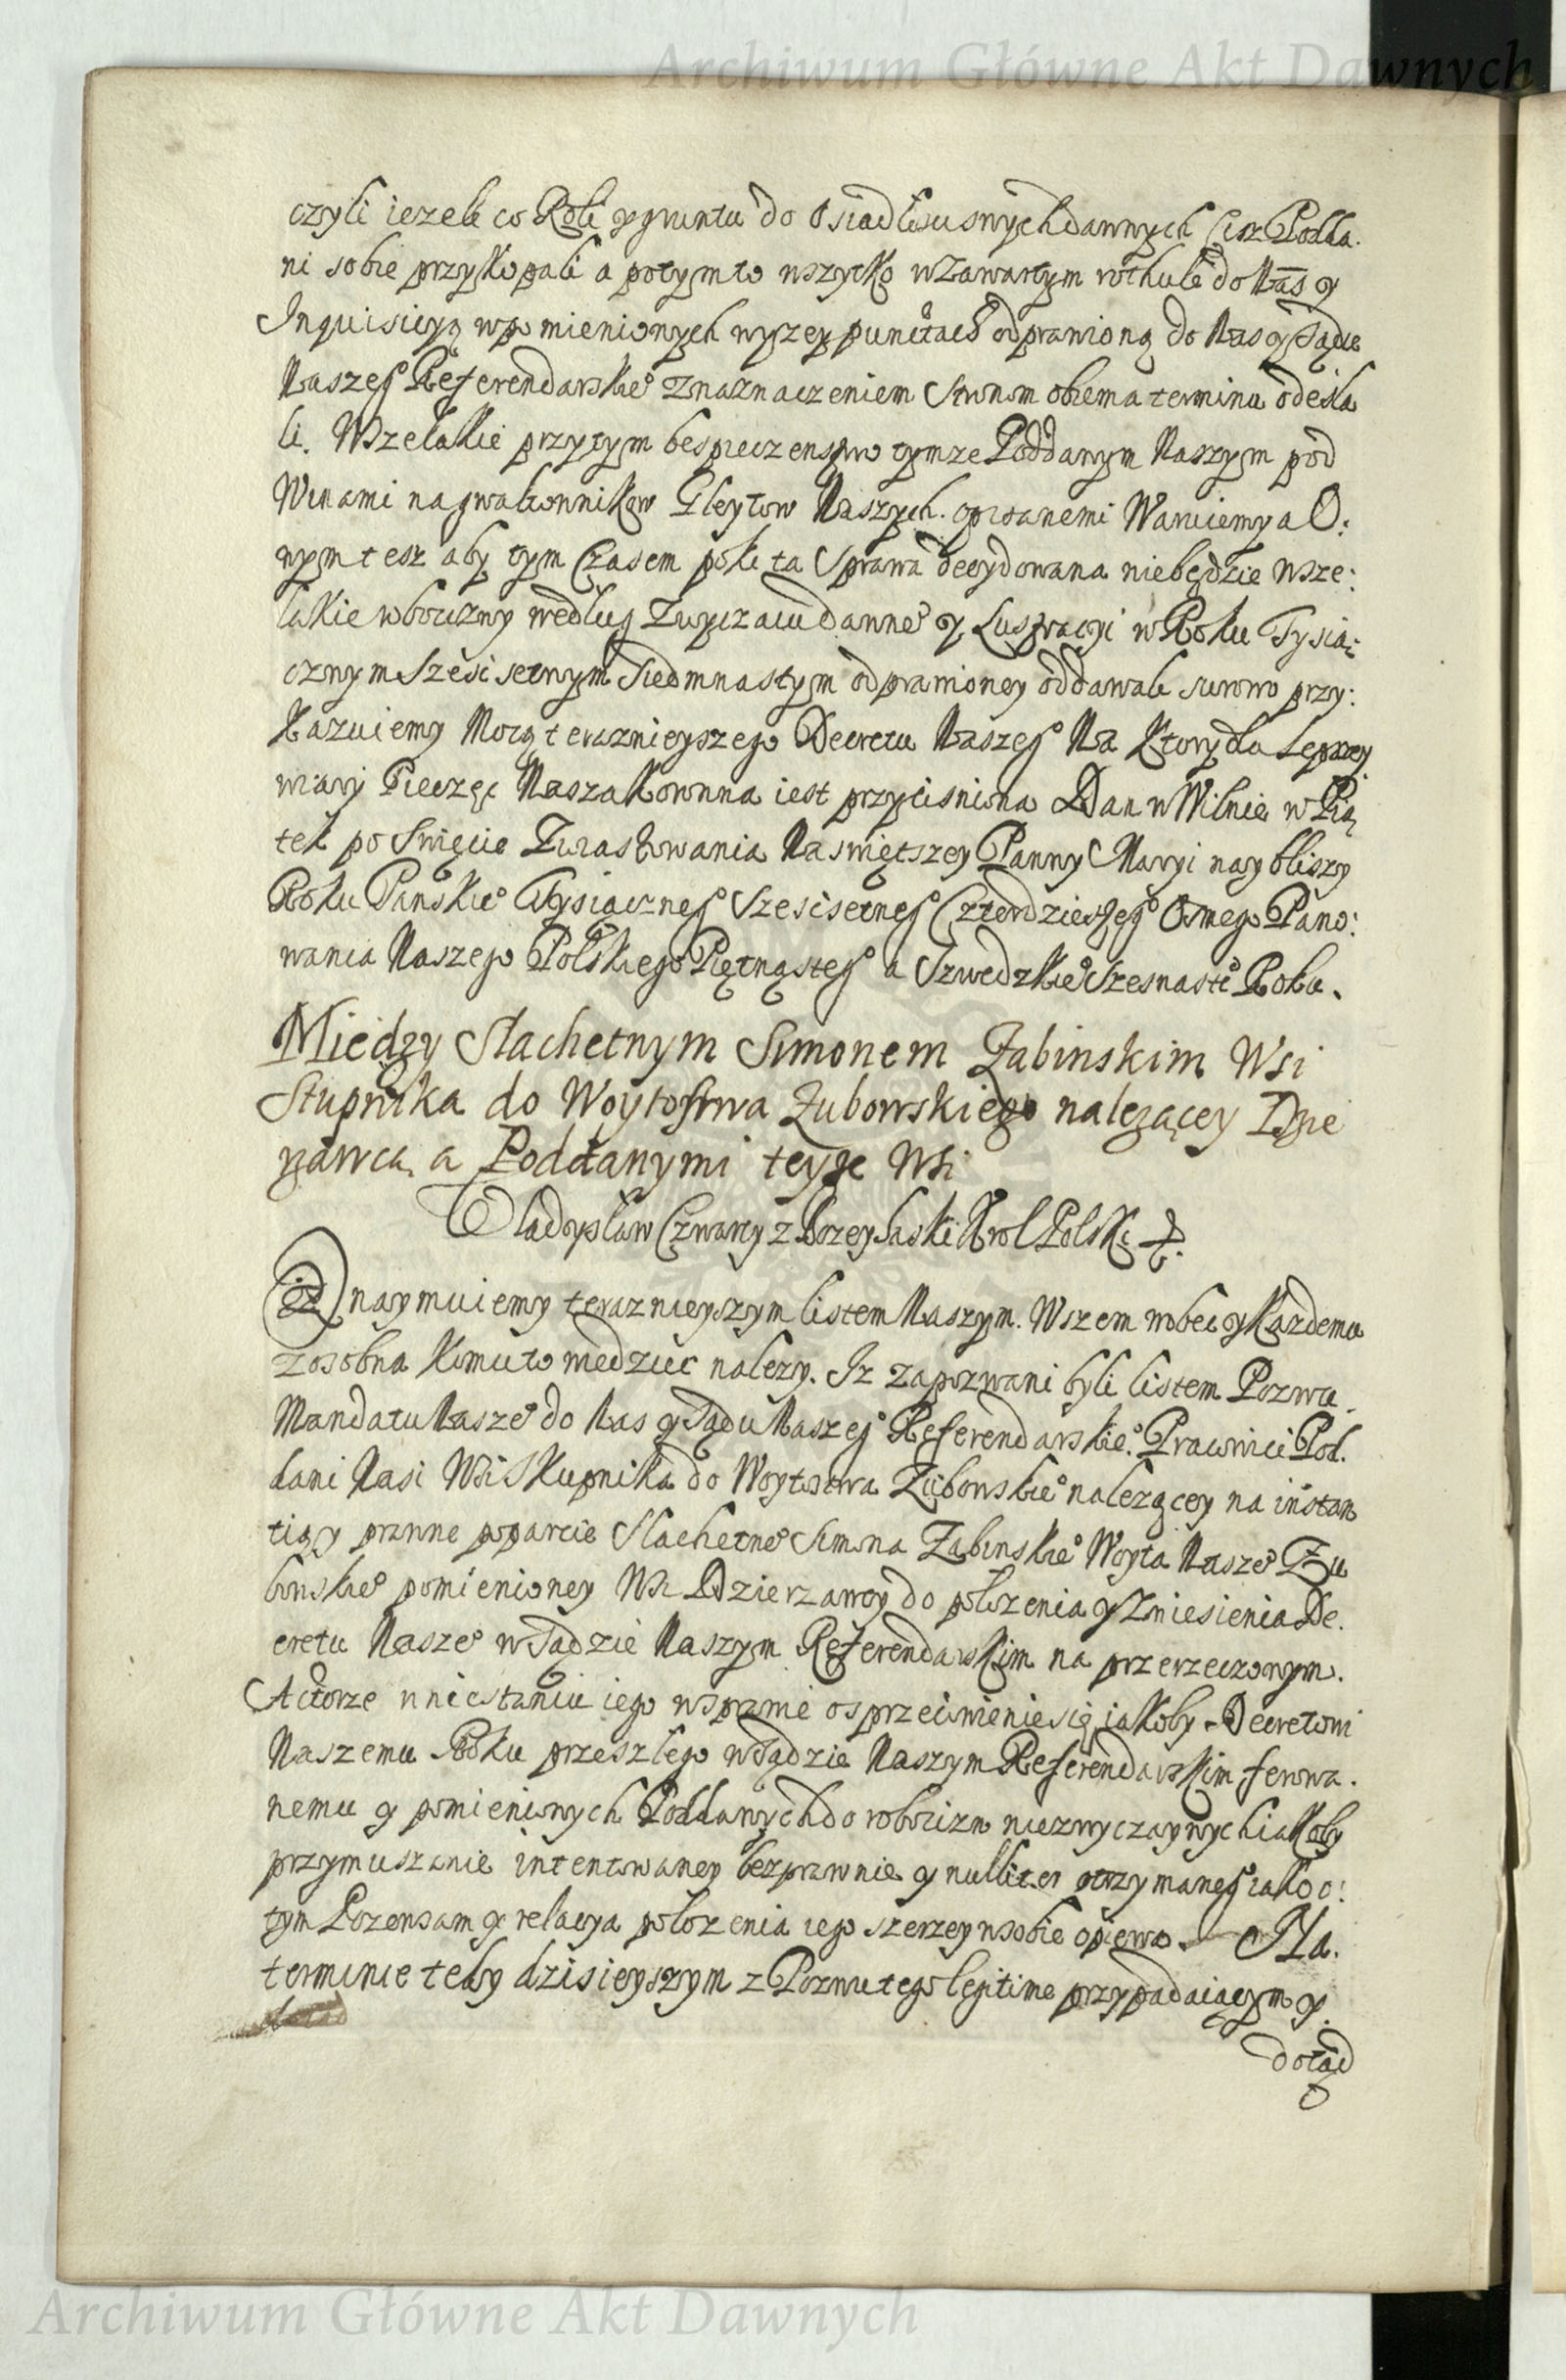 Archiwum Główne Akt Dawnych
czyli iezeli co Roli y gruntu do Osiadłosu swych dawnych Cisz Podda.
ni sobie przykopali a potym to wszytko w Zawartym rothule do Nas y
Inquisicyą w pomienionych wyszey punctach odprawioną do Nas y Sądu
Naszeg° Referendarskie° z naznaczeniem Stronom obiema terminu odesła
li. Wszelakie przytym bespieczenstwo tymze Poddanym Naszym pod
Winami na gwałtownikow Gleytow Naszych. opisanemi Waruiemy a O:
nym tesz aby tym Czasem poki ta Sprawa decydowana niebędzie wsze:
lakie roboczizny według Zwyczaiu dawne° y Lustracyi w Roku Tysią:
cznym Szesc setnym Siedmnastym odprawioney oddawali surowo przy:
kazuiemy Mocą teraznieyszego Decretu Naszeg° Na Ktory dla Lepszey
wiary Pieczęc Nasza Koronna iest przycisniona Dan w Wilnie w Pią
tek po Swięcie Zwiastowania Naswiętszey Panny Maryi naybliszy
Roku Panskie° Tysiączneg° Szescsetneg° Czterdziesteg° Osmego Pano:
wania Naszego Polskiego Piętnasteg° a Szwedzkie° Szesnaste° Roku.
Miedzy Slachetnym Simonem Zabinskim Wsi
Stupnika do Woytostwa Zubowskiego nalezącey Dzie
rzawcą a Poddanymi teyze Wsi
Władysław Czwarty z Bozey Łaski Krol Polski &.
Oznaymuiemy teraznieyszym listem Naszym. Wszem wobec y Kazdemu
z osobna komu to wiedziec nalezy. Iz zapozwani byli listem Pozwu.
Mandatu Nasze° do Nas y Sądu Naszeg° Referendarskie°. Pracowici Pod.
dani Nasi Wsi Skupnika do Woytostwa Zubowskie° nalezącey na instan
tią y prawne poparcie Slachetne° Simona Zabinskie° Woyta Nasze° Zu
bowskie° pomienioney Wsi Dzierzawcy do połozenia y Zniesienia De.
cretu Nasze° w Sądzie Naszym Referendarskim na przerzeczonym.
Actorze w niestaniu iego w sprawie o sprzeciwienie się iakoby Decretowi
Naszemu Roku przeszłego w Sądzie Naszym Referendarskim ferowa.
nemu y pomienionych Poddanych do robocizn niezwyczaynych iakoby
przymuszanie intentowaney bezprawnie y nulliter otrzymaneg° iako o:
tym Pozew sam y relacya połozenia iego szerzey w sobie opiewa. Na.
terminie tedy dzisieyszym z Pozwu tego legitime przypadaiącym y.
dotąd
Archiwum Główne Akt Dawnych